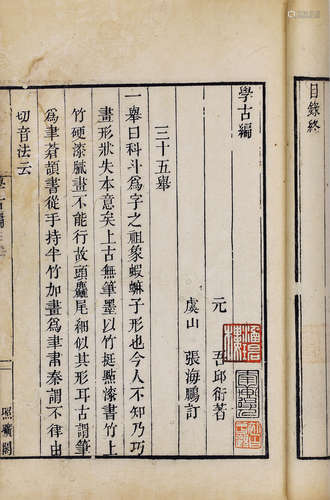 目錄終
學古編
元　吾邱衍著
虞山　張海鵬訂
三十五舉
一舉曰科斗爲字之祖象蝦蟆子形也今人不知乃巧
畫形狀失本意矣上古無筆墨以竹挺點漆書竹上
竹硬漆膩畫不能行故頭麤尾細似其形耳古謂筆
爲聿蒼頡書從手持半竹加畫爲聿秦謂不律由
切音法云
學古編
照曠閣